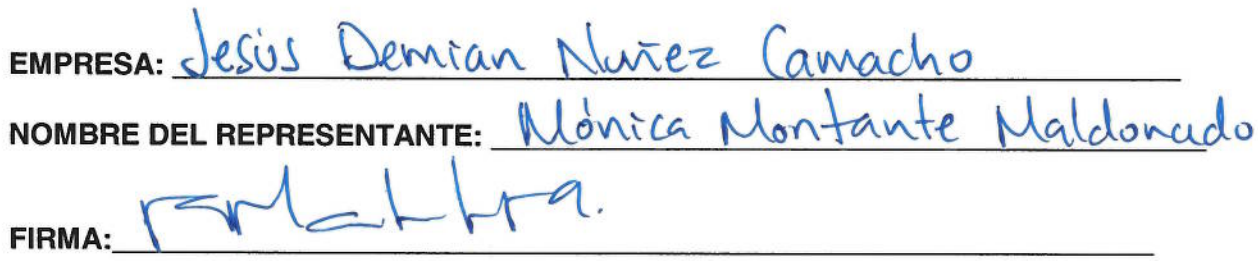 EMPRESA: Jesús Demian Nuñez Camacho
NOMBRE DEL REPRESENTANTE: Mónica Montante Maldonado
FIRMA: